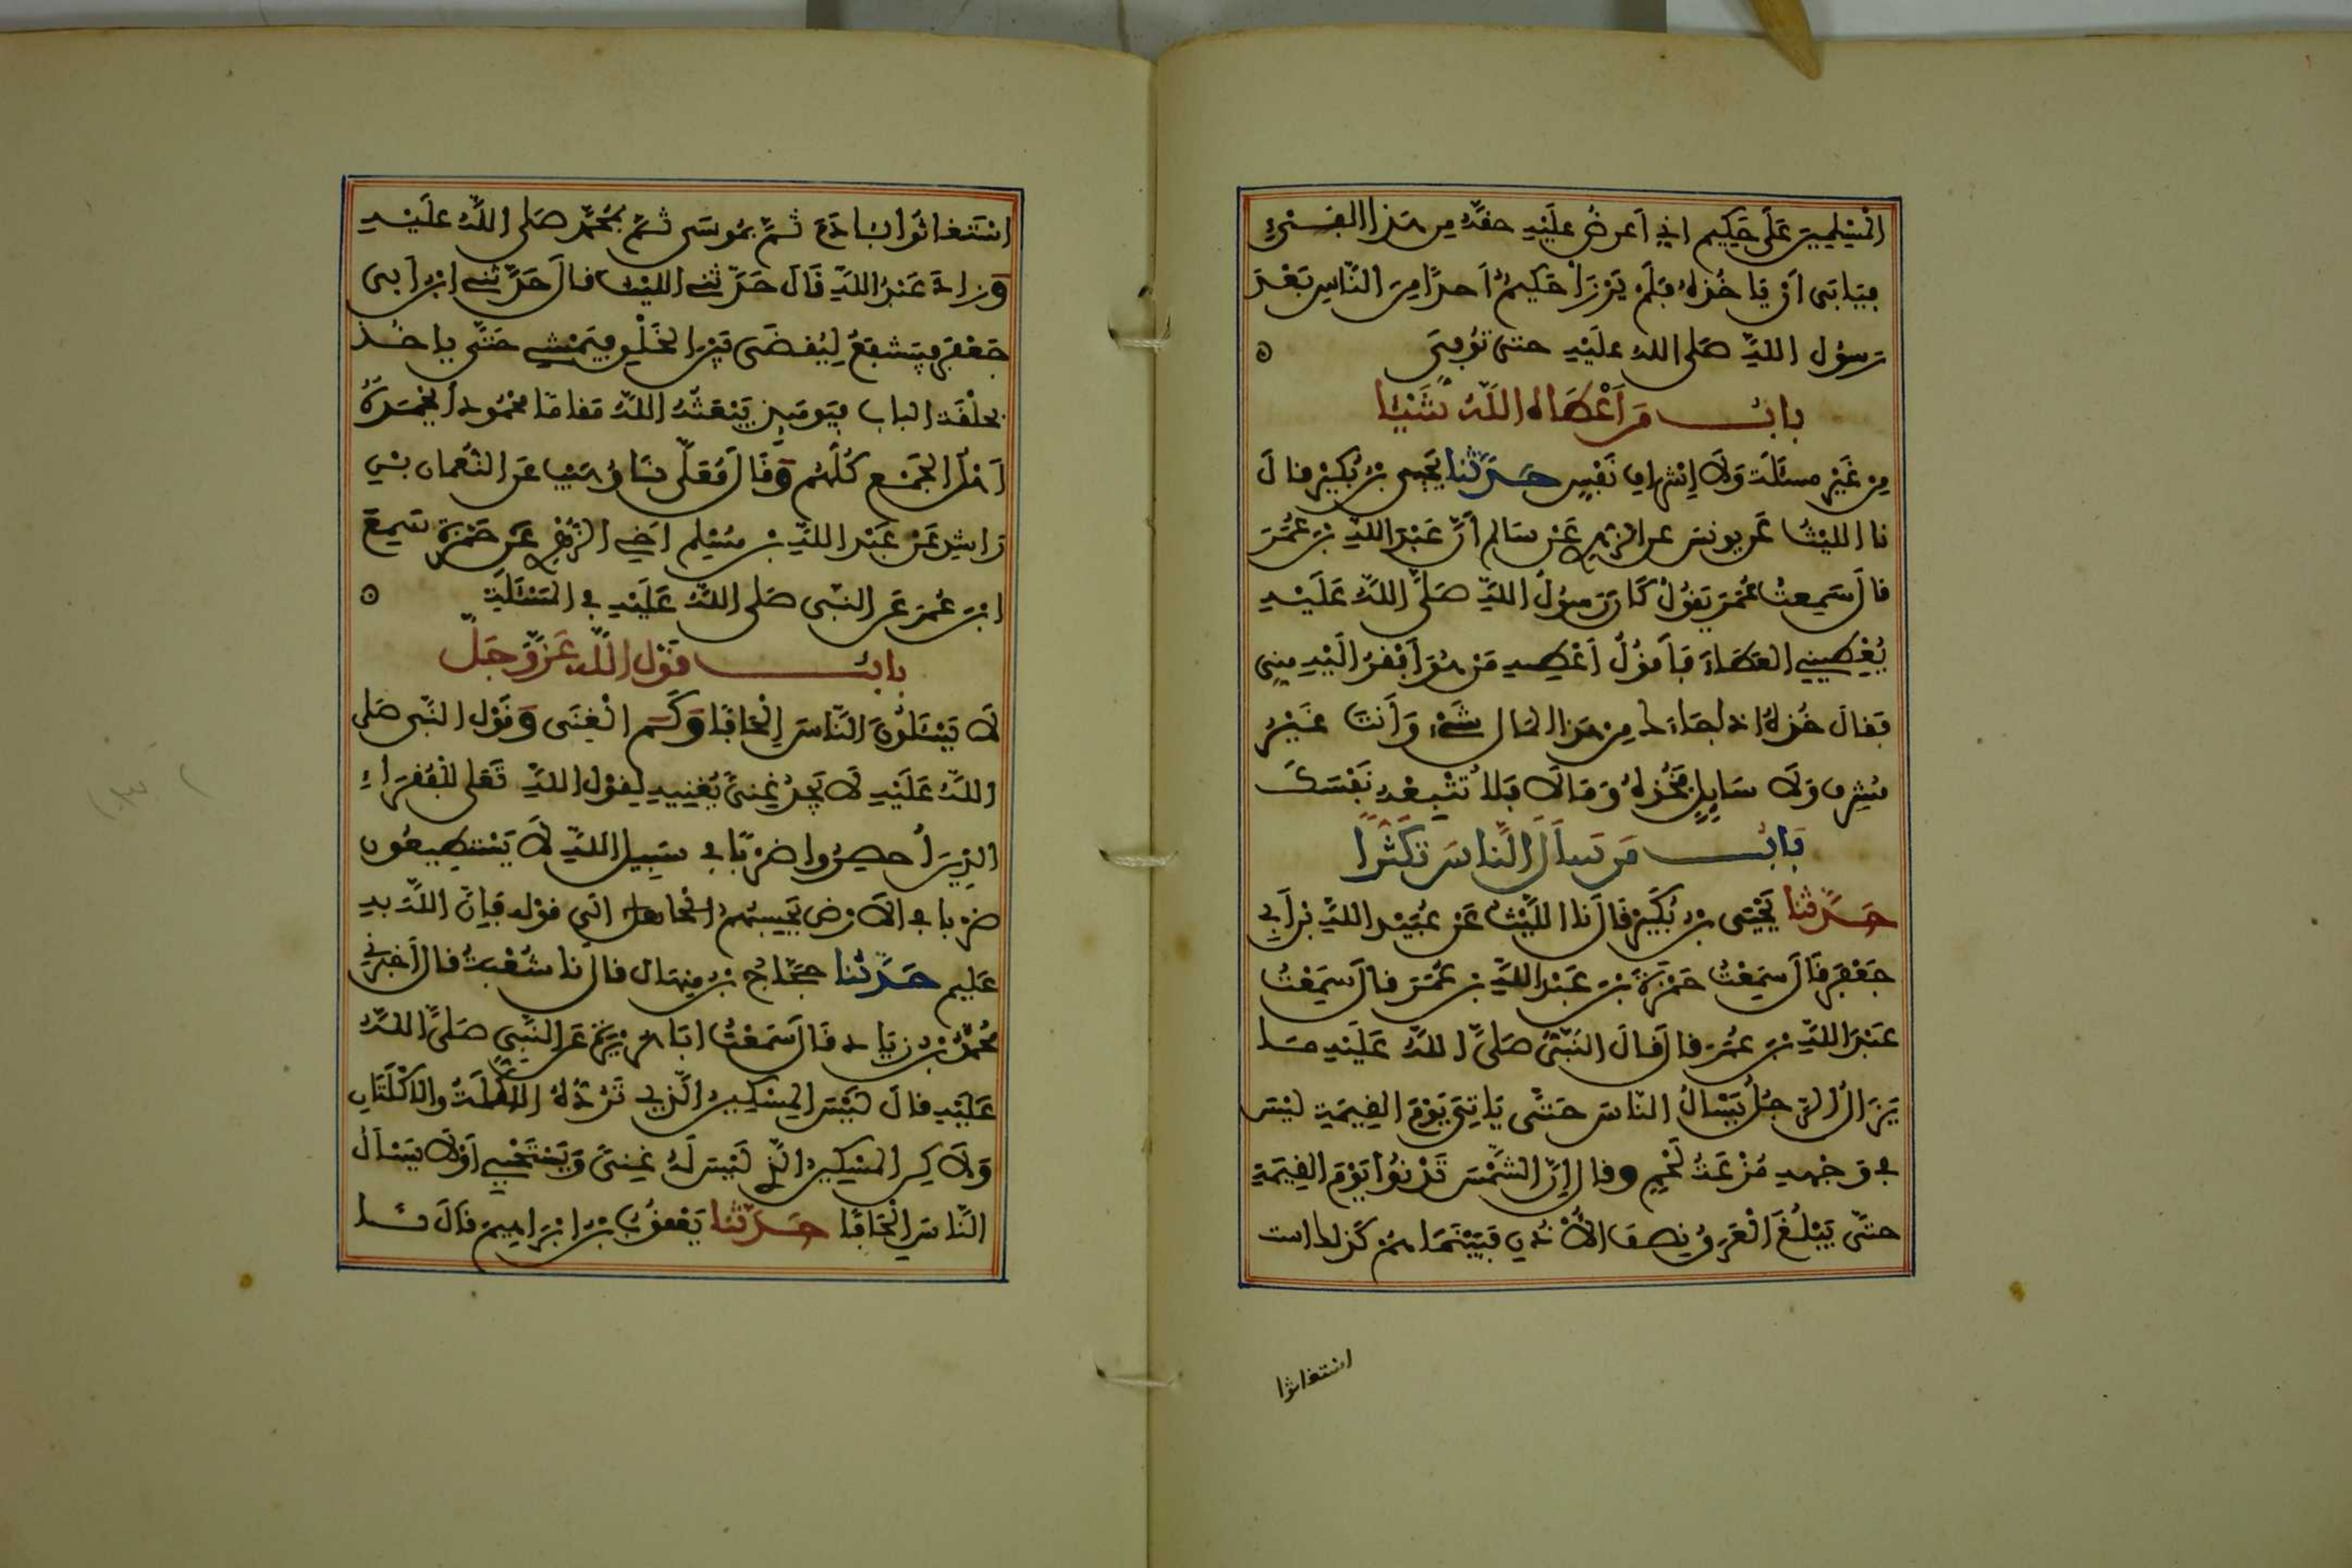 المسلمين على حكيم اني اعرض عليه حقه من هذا الفيء
فيابى أن ياخذه فلم يرزأ حكيم أحدا من الناس بعد
رسول الله صلى الله عليه حتى توفي
باب من أعطاه الله شيئا
من غير مسئلة ولا إشراف نفس حدثنا يحيى بن بكير قال
نا الليث عن يونس عن الزهري عن سالم أن عبد الله بن عمر
قال سمعت عمر يقول كان رسول الله صلى الله عليه
يعطيني العطاء فأقول أعطه من هو أفقر اليه مني
فقال خذه اذا جاءك من هذا المال شيء وأنت غير
مشرف ولا سايل فخذه وما لا فلا تتبعه نفسك
باب من سأل الناس تكثرا
حدثنا يحيى بن بكير قال نا الليث عن عبيد الله بن أبي
جعفر قال سمعت حمزة بن عبد الله بن عمر قال سمعت
عبد الله بن عمر قال قال النبي صلى الله عليه ما
يزال الرجل يسأل الناس حتى ياتي يوم القيمة ليس
في وجهه مزعة لحم وقال إن الشمس تدنوا يوم القيمة
حتى يبلغ العرق نصف الأذن فبينما هم كذلك است
استغاثوا
استغاثوا بئادم ثم بموسى ثم بمحمد صلى الله عليه
وزاد عبد الله قال حدثني الليث قال حدثني ابن أبي
جعفر فيشفع ليقضى بين الخلق فيمشي حتى ياخذ
بحلقة الباب فيومئذ يبعثه الله مقاما محمودا يحمده
أهل الجمع كلهم وقال معلى نا وهيب عن النعمان بن
راشد عن عبد الله بن مسلم اخي الزهري عن حمزة سمع
ابن عمر عن النبي صلى الله عليه في المسئلة
باب قول الله عز وجل
لا يسئلون الناس إلحافا وكم الغنى وقول النبي صلى
الله عليه لا يجد غنى يغنيه لقول الله تعلى للفقراء
الذين أحصروا ضربا في سبيل الله لا يستطيعون
ضربا في الارض يحسبهم الجاهل الى قوله فإن الله به
عليم حدثنا حجاج بن منهال قال نا شعبة قال أخبرني
محمد بن زياد قال سمعت ابا هريرة عن النبي صلى الله
عليه قال ليس المسكين الذي ترده الاكلة والاكلتان
ولاكن المسكين الذي ليس له غنى ويستحيي أو لا يسأل
الناس إلحافا حدثنا يعقوب بن ابراهيم قال نا